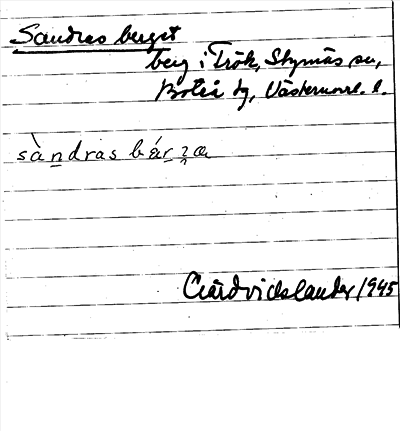 Sandras berget
berg i Trök, Skymnäs sn,
Boteå tg, Västernorrl. l.
sàndras bárʒæ
Gårdvidslander 1945